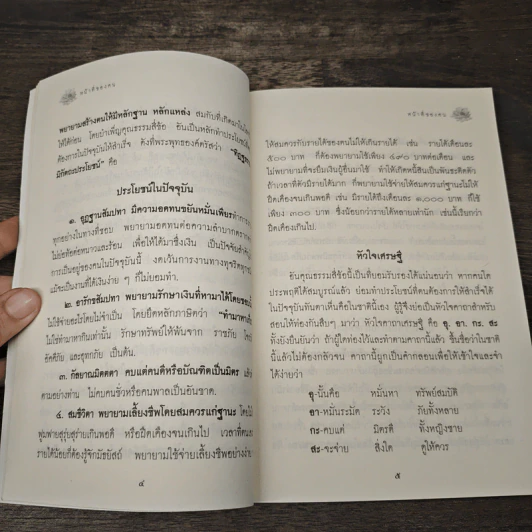 หน้าที่ของคน
พยายามสร้างตนให้มีหลักฐาน หลักแหล่ง สมกับที่เกิดมาใน
ให้ได้ก่อน โดยบำเพ็ญคุณธรรมสี่ข้อ อันเป็นหลักทำประโยชน์
ต้องการในปัจจุบันให้สำเร็จ ดังที่พระพุทธองค์ตรัสว่า
มิกัตถประโยชน์" คือ
ประโยชน์ในปัจจุบัน
๑. อุฏฐานสัมปทา มีความอดทนขยันหมั่นเพียร
ทุกอย่างในทางที่ชอบ พยายามอดทนต่อความลำบากตรากตรำ
ไม่ย่อท้อต่อหนาวและร้อน เพื่อให้ได้มาซึ่งเงิน เป็นปัจจัยสำคัญ
การเป็นอยู่ของตนในปัจจุบันนี้ งดเว้นการงานทางทุจริต
แม้จะเป็นงานที่ได้เงินง่าย ๆ ก็ไม่ยอมทำ
๒. อารักขสัมปทา พยายามรักษาเงินที่หามาให้โดยชอบ
ไม่ใช้จ่ายอะไรโดยไม่จำเป็น โดยยึดหลักภาษิตว่า
ไม่ใช่ทำมาหากินเท่านั้น รักษาทรัพย์ให้พ้นจาก ราชภัย
อัคคีภัย และอุทกภัย เป็นต้น
๓. กัลยาณมิตตตา คบแต่คนดีหรือบัณฑิตเป็นมิตร
ตามอย่างท่าน ไม่คบคนชั่วหรือคนพาลเป็นอันขาด
๔. สมชีวิตา พยายามเลี้ยงชีพโดยสมควรแก่ฐานะ
ฟุ่มเฟือยสุรุ่ยสุร่ายเกินพอดี หรือฝืดเคืองจนเกินไป เวลาที่ตน
รายได้น้อยก็ต้องรู้จักมัธยัสถ์ พยายามใช้จ่ายเลี้ยงชีพอย่าง
๔
หน้าที่ของคน
ให้สมควรกับรายได้ของตนไม่ให้เกินรายได้ เช่น รายได้เดือนละ
๕๐๐ บาท ก็ต้องพยายามใช้เพียง ๔๙๐ บาทต่อเดือน และ
ไม่พยายามที่จะยืมเงินผู้อื่นมาใช้ ทำให้เกิดหนี้สินเป็นพันธะติดตัว
ถ้าเวลาที่ตัวมีรายได้มาก ก็พยายามใช้จ่ายให้สมควรแก่ฐานะไม่ให้
ฝืดเคืองเกินพอดี เช่น มีรายได้เดือนละ ๑,๐๐๐ บาท ก็ใช้
เพียง ๓๐๐ บาท ซึ่งน้อยกว่ารายได้หลายเท่านัก เช่นนี้เรียกว่า
ฝืดเคืองเกินไป
หัวใจเศรษฐี
อันคุณธรรมสี่ข้อนี้เป็นที่ยอมรับรองได้แน่นอนว่า หากคนใด
ประพฤติได้สมบูรณ์แล้ว ย่อมทำประโยชน์ที่ตนต้องการให้สำเร็จได้
ในปัจจุบันทันตาเห็นคือในชาตินี้เอง ผู้รู้จึงย่อเป็นหัวใจคาถาสำหรับ
สอนให้ท่องกันสืบๆ มาว่า หัวใจคาถาเศรษฐี คือ อุ. อา. กะ. สะ
ทั้งยังยืนยันว่า ถ้าผู้ใดท่องไว้และทำตามคาถานี้แล้ว ขึ้นชื่อว่าในชาติ
นี้แล้วไม่ต้องกลัวจน คาถานี้ถูกเป็นคำกลอนเพื่อให้เข้าใจและจำ
ได้ง่ายว่า
อุ-นั้นคือ หมั่นหา ทรัพย์สมบัติ
อา-หมั่นระมัด ระวัง ภัยทั้งหลาย
กะ-คบแต่ มิตรดี ทั้งหญิงชาย
สะ-จะจ่าย สิ่งใด ดูให้ควร
๕